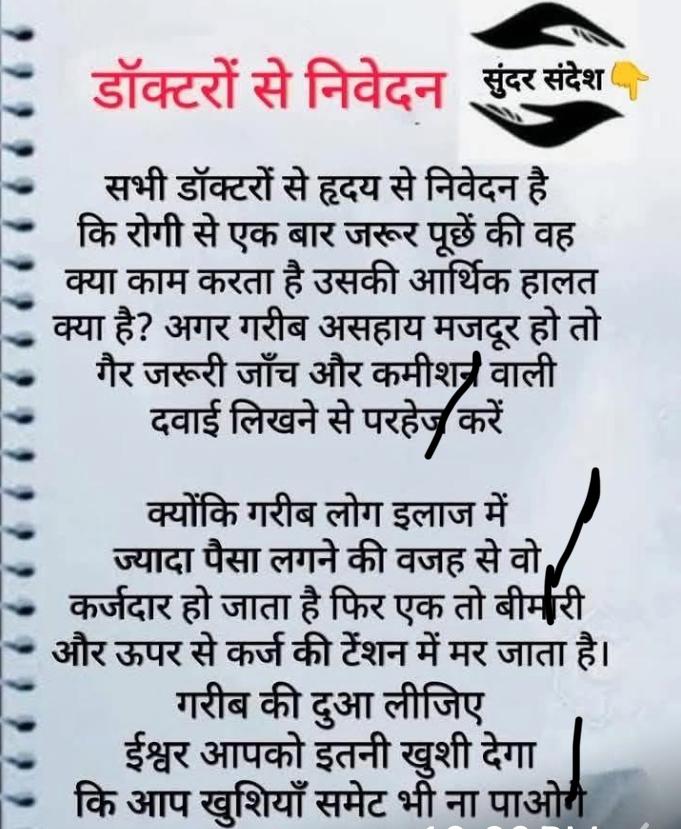 डॉक्टरों से निवेदन
सुंदर संदेश👇
सभी डॉक्टरों से हृदय से निवेदन है
कि रोगी से एक बार जरूर पूछें की वह
क्या काम करता है उसकी आर्थिक हालत
क्या है? अगर गरीब असहाय मजदूर हो तो
गैर जरूरी जाँच और कमीशन वाली
दवाई लिखने से परहेज करें
क्योंकि गरीब लोग इलाज में
ज्यादा पैसा लगने की वजह से वो
कर्जदार हो जाता है फिर एक तो बीमारी
और ऊपर से कर्ज की टेंशन में मर जाता है।
गरीब की दुआ लीजिए
ईश्वर आपको इतनी खुशी देगा
कि आप खुशियाँ समेट भी ना पाओगे